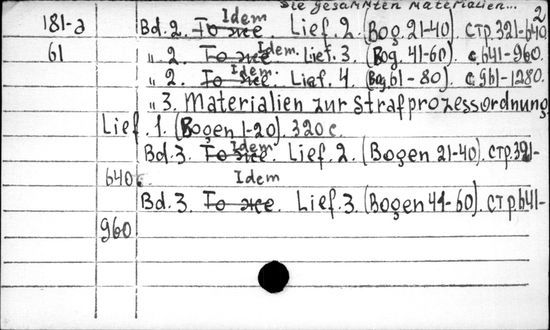 Die gesammten Materialien... 2
181-a Bd. 2. То же. Idem Lief. 2. (Bog. 21-40). стр. 321-640
61 " 2. То же. Idem. Lief. 3. (Bog. 41-60). с. 641-960.
" 2. То же. Idem. Lief. 4. (Bog. 61-80). с. 961-1280.
" 3. Materialien zur Strafprozessordnung
Lief. 1. (Bogen 1-20). 320 с.
Bd. 3. То же. Idem. Lief. 2. (Bogen 21-40). стр. 321-
640.
Bd. 3. То же. Idem Lief. 3. (Bogen 41-60). стр. 641-
960